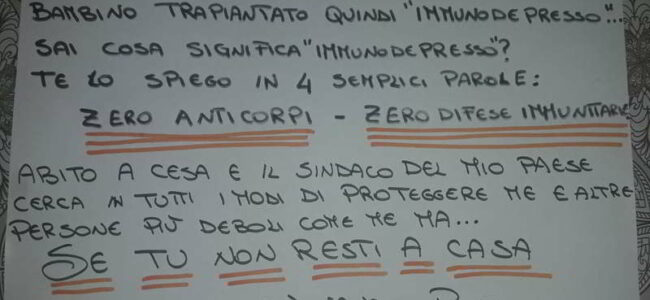 BAMBINO TRAPIANTATO QUINDI "IMMUNODEPRESSO"...
SAI COSA SIGNIFICA "IMMUNODEPRESSO"?
TE LO SPIEGO IN 4 SEMPLICI PAROLE:
ZERO ANTICORPI - ZERO DIFESE IMMUNITARIE
ABITO A CESA E IL SINDACO DEL MIO PAESE
CERCA IN TUTTI I MODI DI PROTEGGERE ME E ALTRE
PERSONE PIÙ DEBOLI COME ME MA...
SE TU NON RESTI A CASA